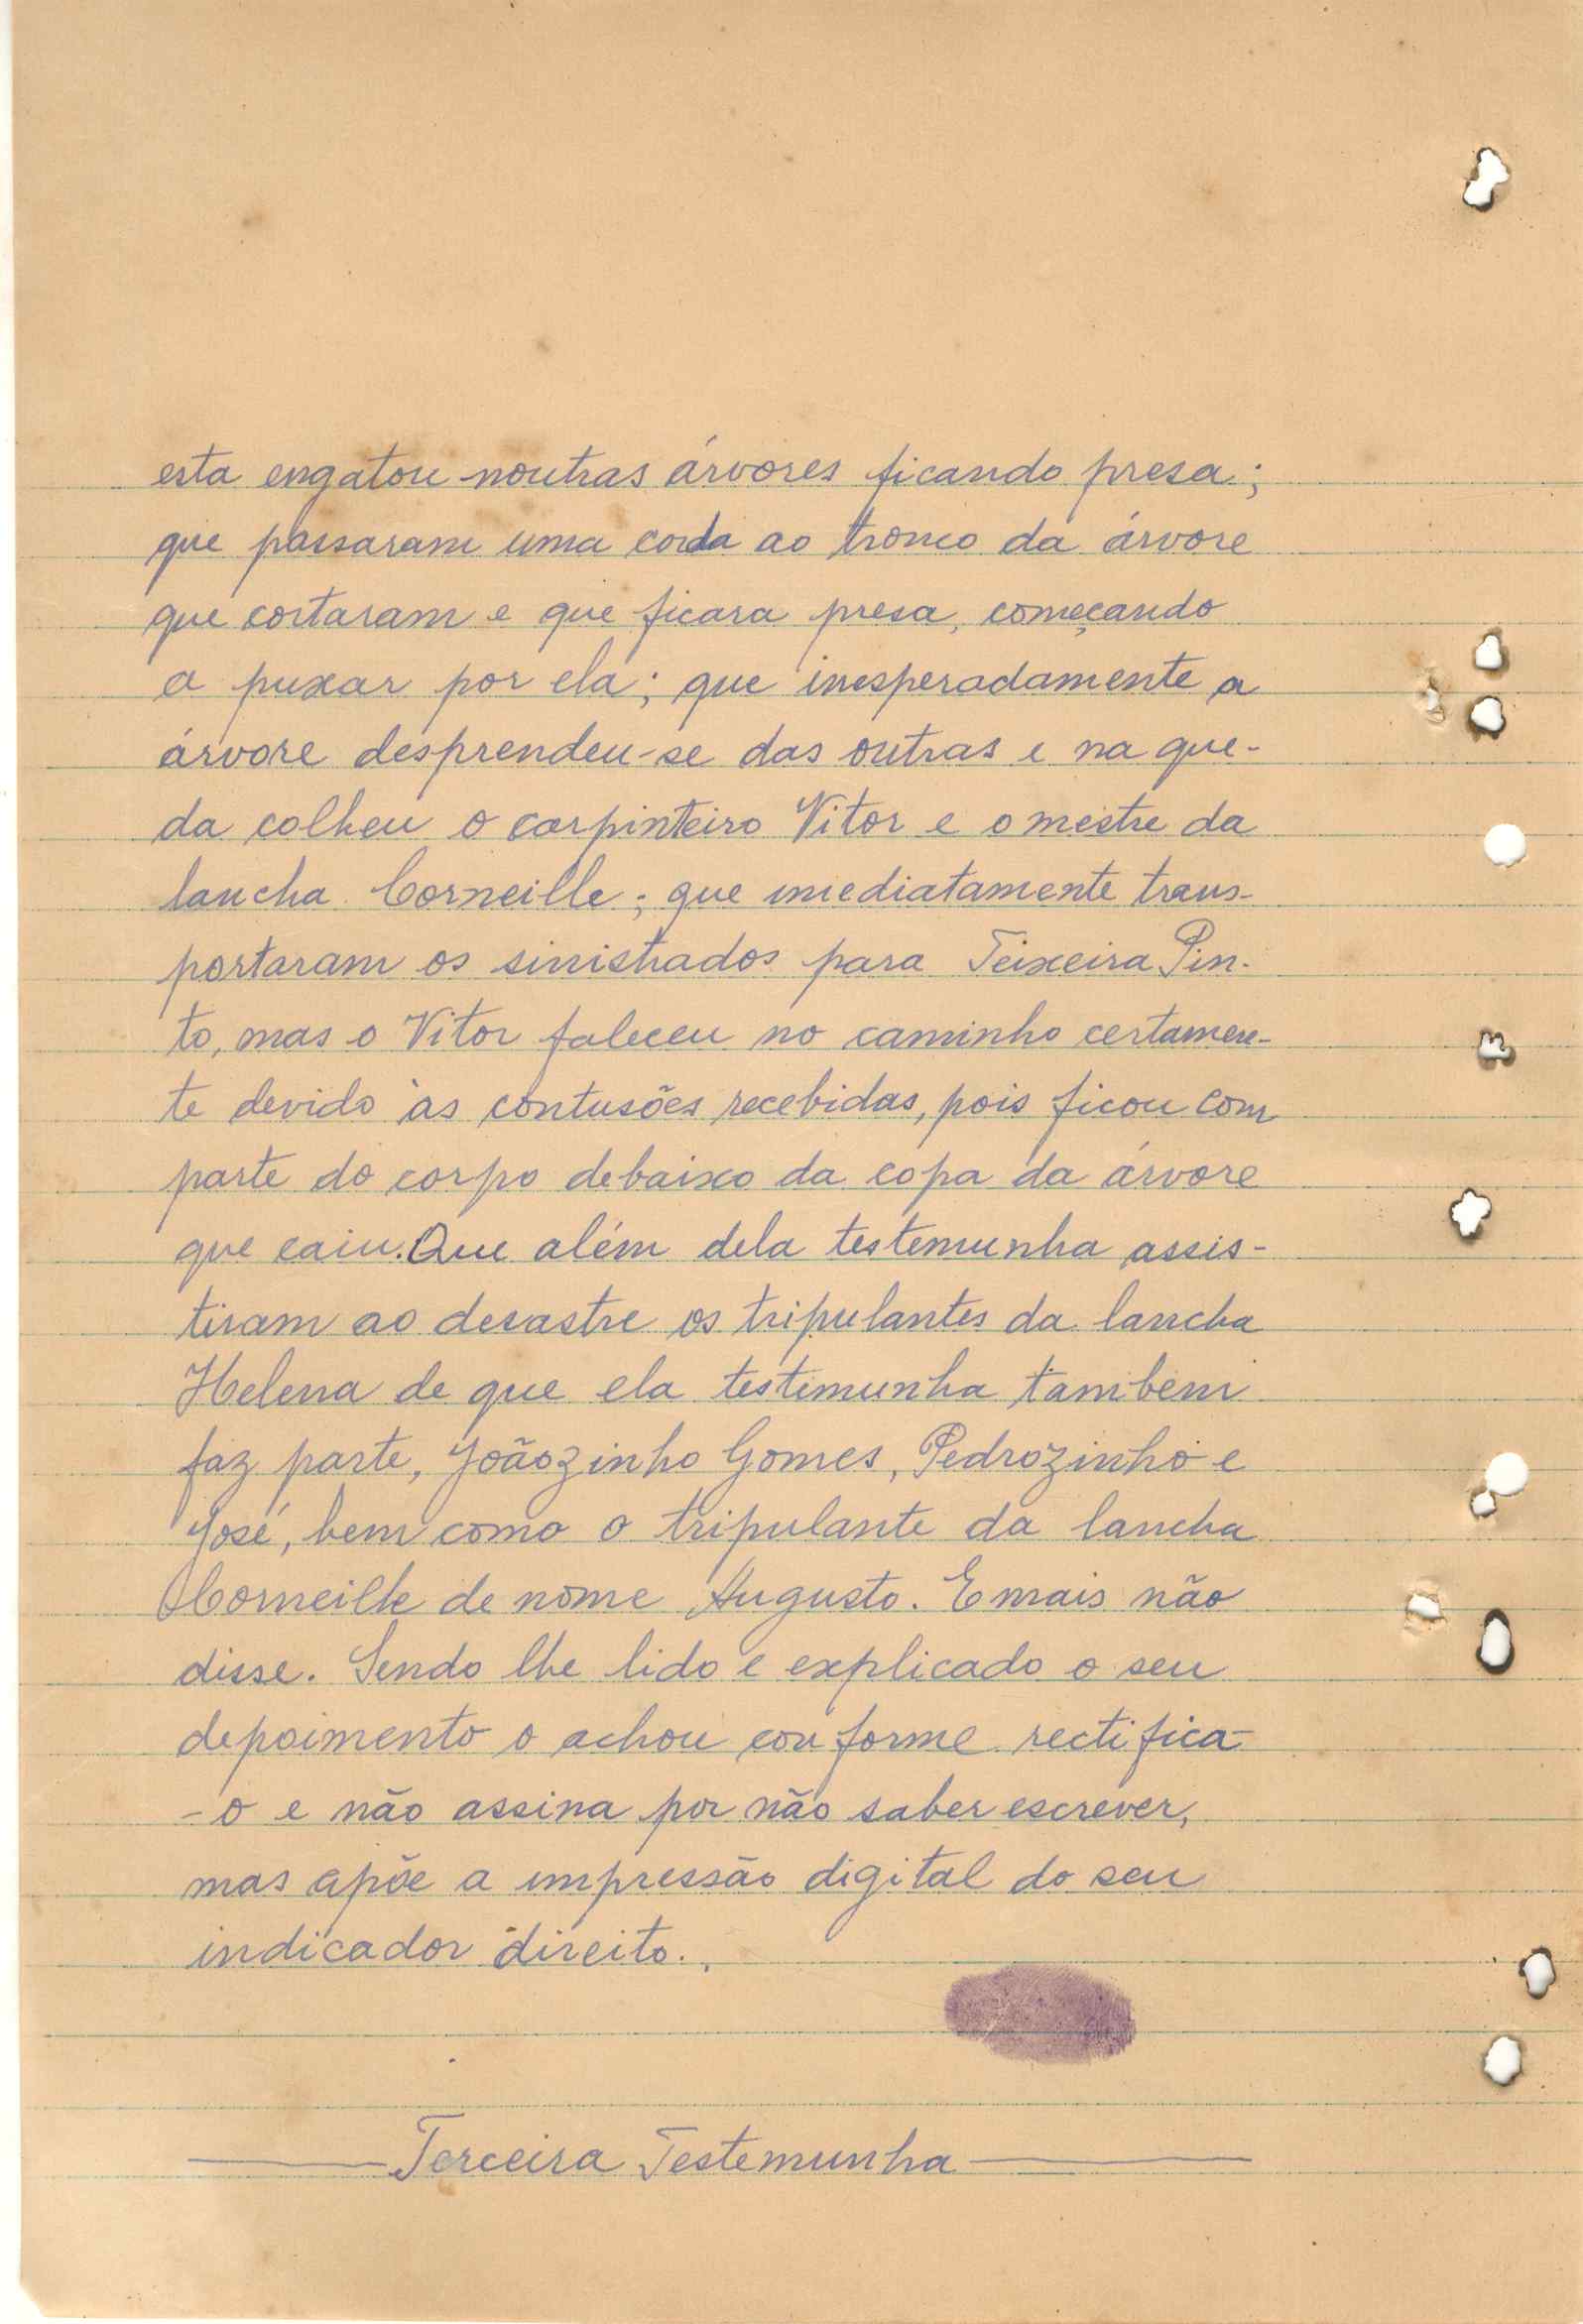 esta engatou noutras árvores ficando presa;
que passaram uma corda ao tronco da árvore
que cortaram e que ficara presa, começando
a puxar por ela; que inesperadamente a
árvore desprendeu-se das outras e na que-
da colheu o carpinteiro Vitor e o mestre da
lancha Corneille; que imediatamente trans-
portaram os sinistrados para Teixeira Pin-
to, mas o Vitor faleceu no caminho certamen-
te devido às contusões recebidas, pois ficou com
parte do corpo debaixo da copa da árvore
que caiu. Que além dela testemunha assis-
tiram ao desastre os tripulantes da lancha
Helena de que ela testemunha também
faz parte, Joãozinho Gomes, Pedrozinho e
José, bem como o tripulante da lancha
Corneille de nome Augusto. E mais não
disse. Sendo lhe lido e explicado o seu
depoimento o achou conforme rectifica-
-o e não assina por não saber escrever,
mas apõe a impressão digital do seu
indicador direito.
Terceira Testemunha